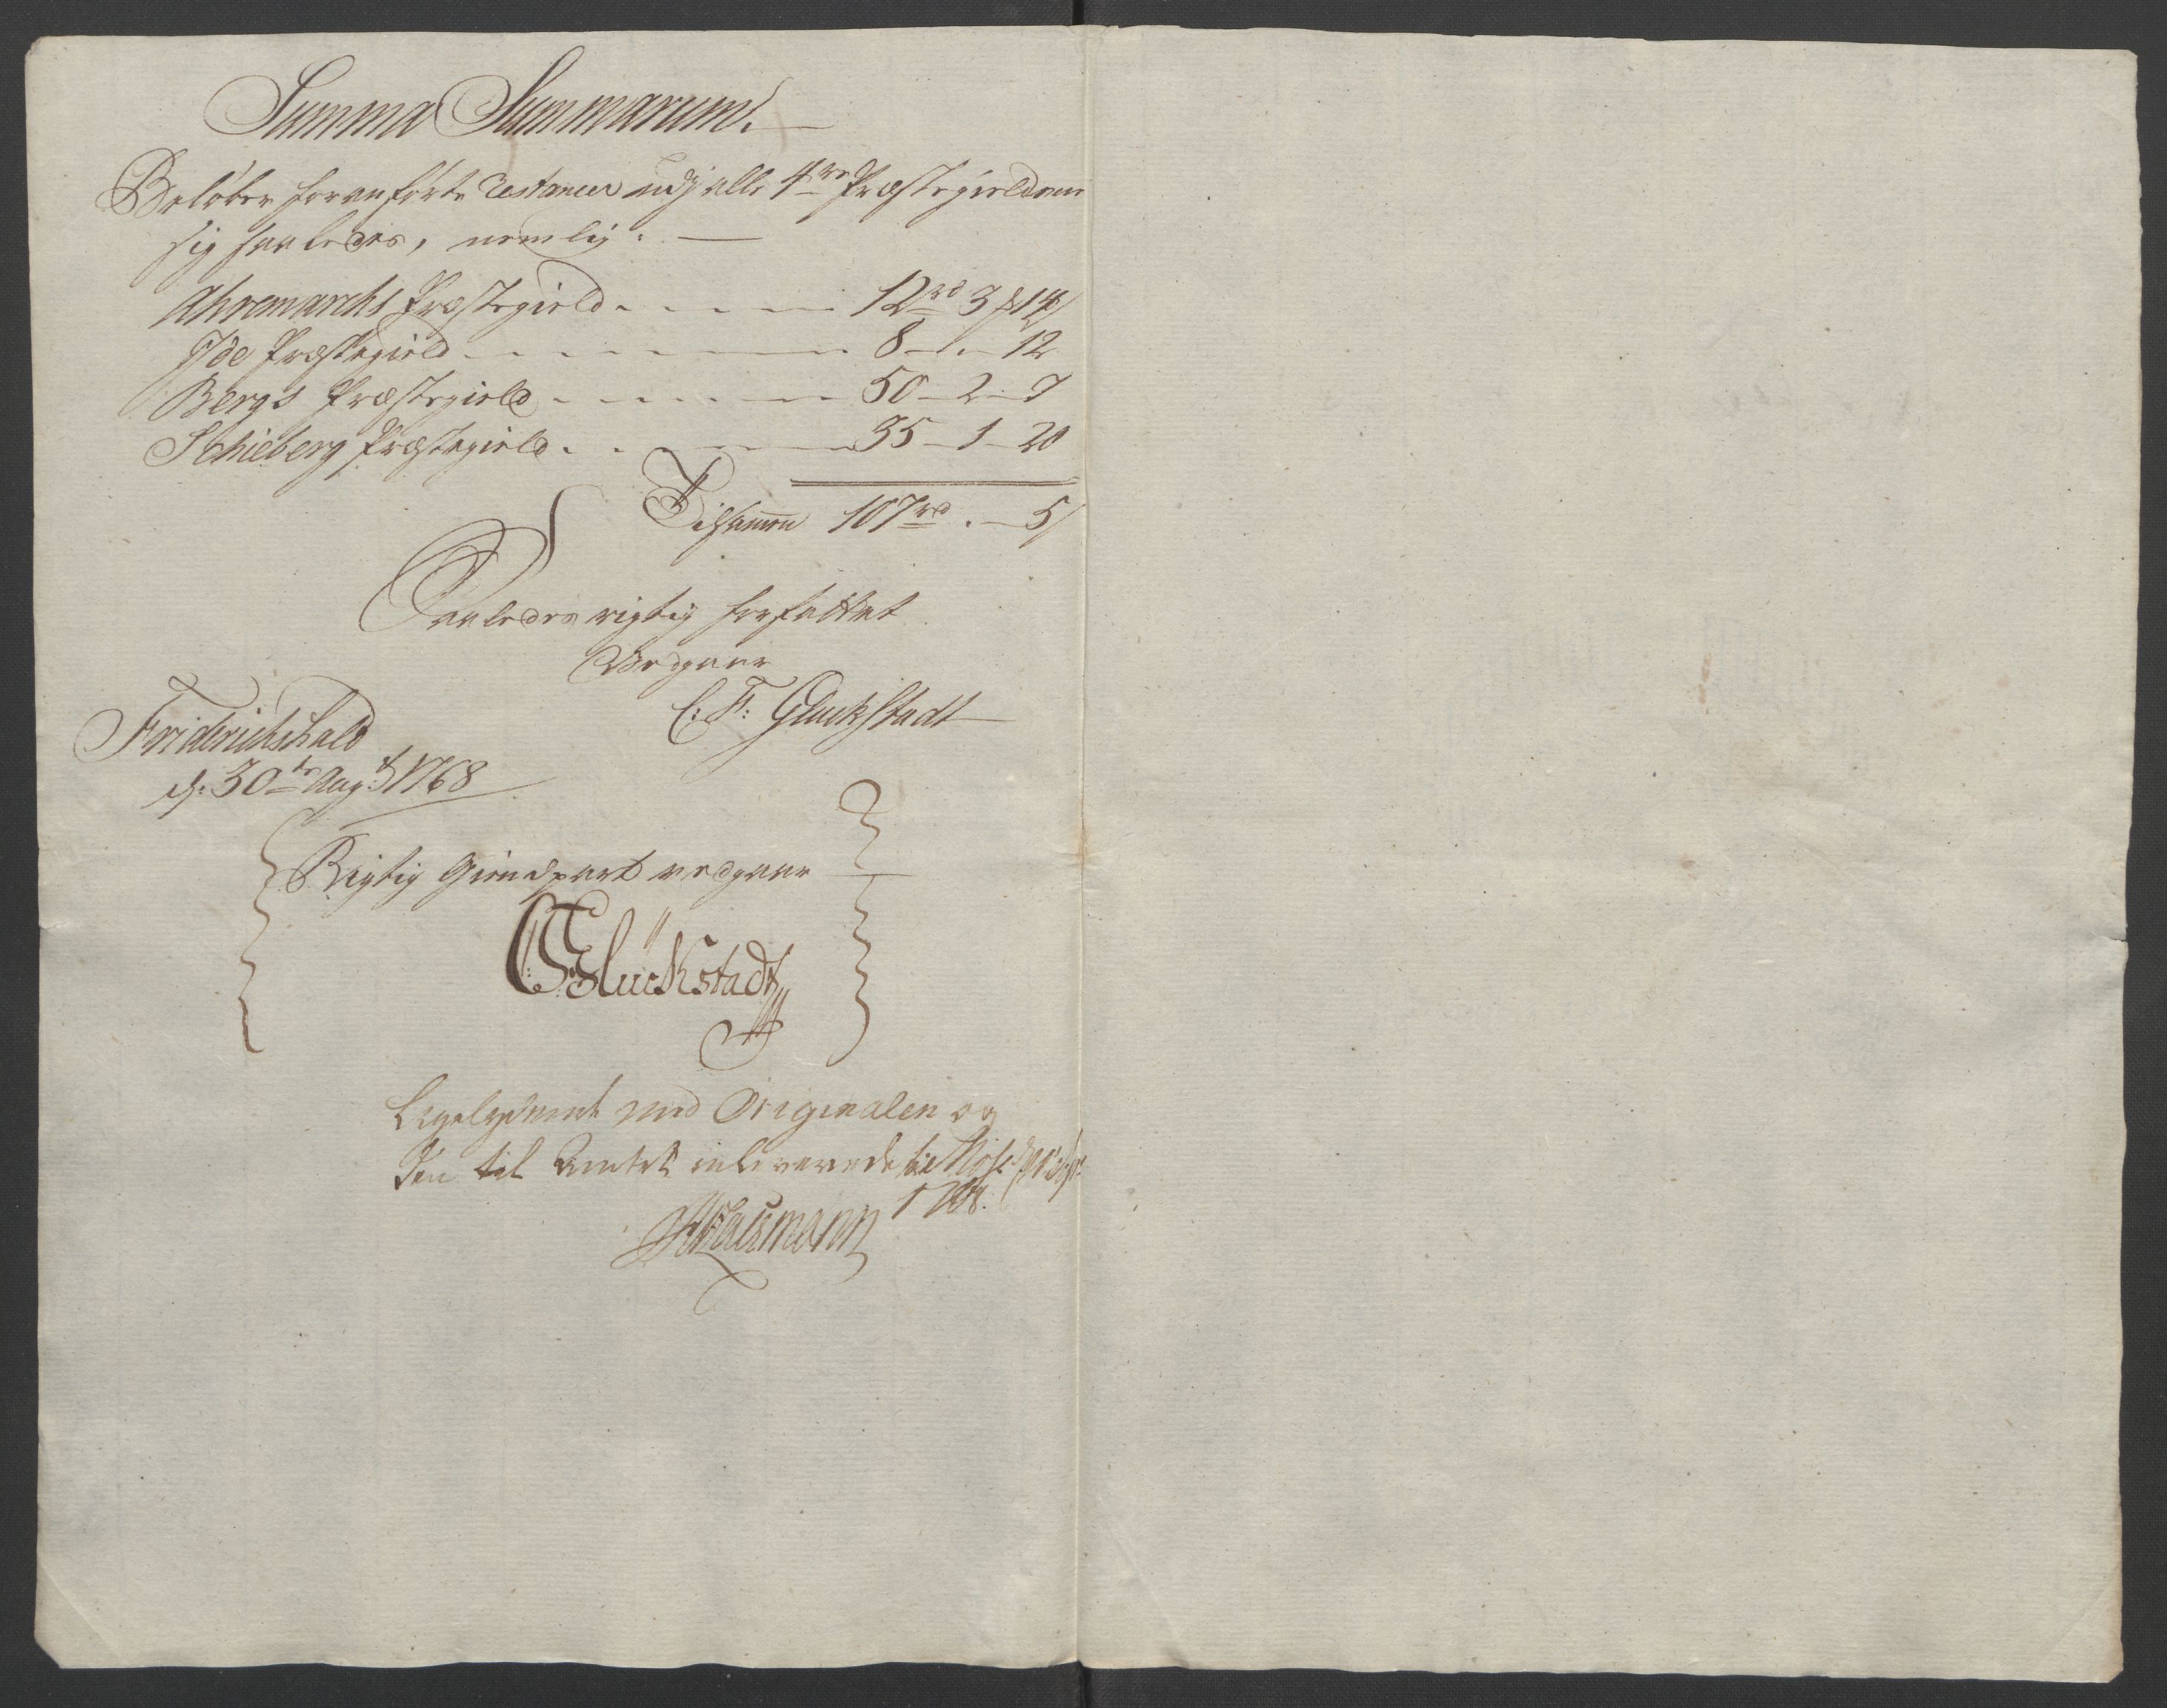 Summa Summarum.
Beløber foranførte Restancer udj alle 4re Præstegieldene
sig saaledes, nemlig.
Ahremarchs Præstegield 12 rd 3 # 14 s
Ide Præstegield 8 - . - 12
Bergs Præstegield 50 - 2 - 7
Schieberg Præstegield 35 - 1 - 20
Tilsammen 107 rd . - 5 s
Saaledes rigtig forfattet
Vedgaaer
C: F: Gluckstadt
Friderichshald
d: 30te Aug: 1768
Rigtig Gienpart vedgaaer
C: F: Glückstadt
Ligelydende med Originalen og
den til Amtet inleverede
1768.